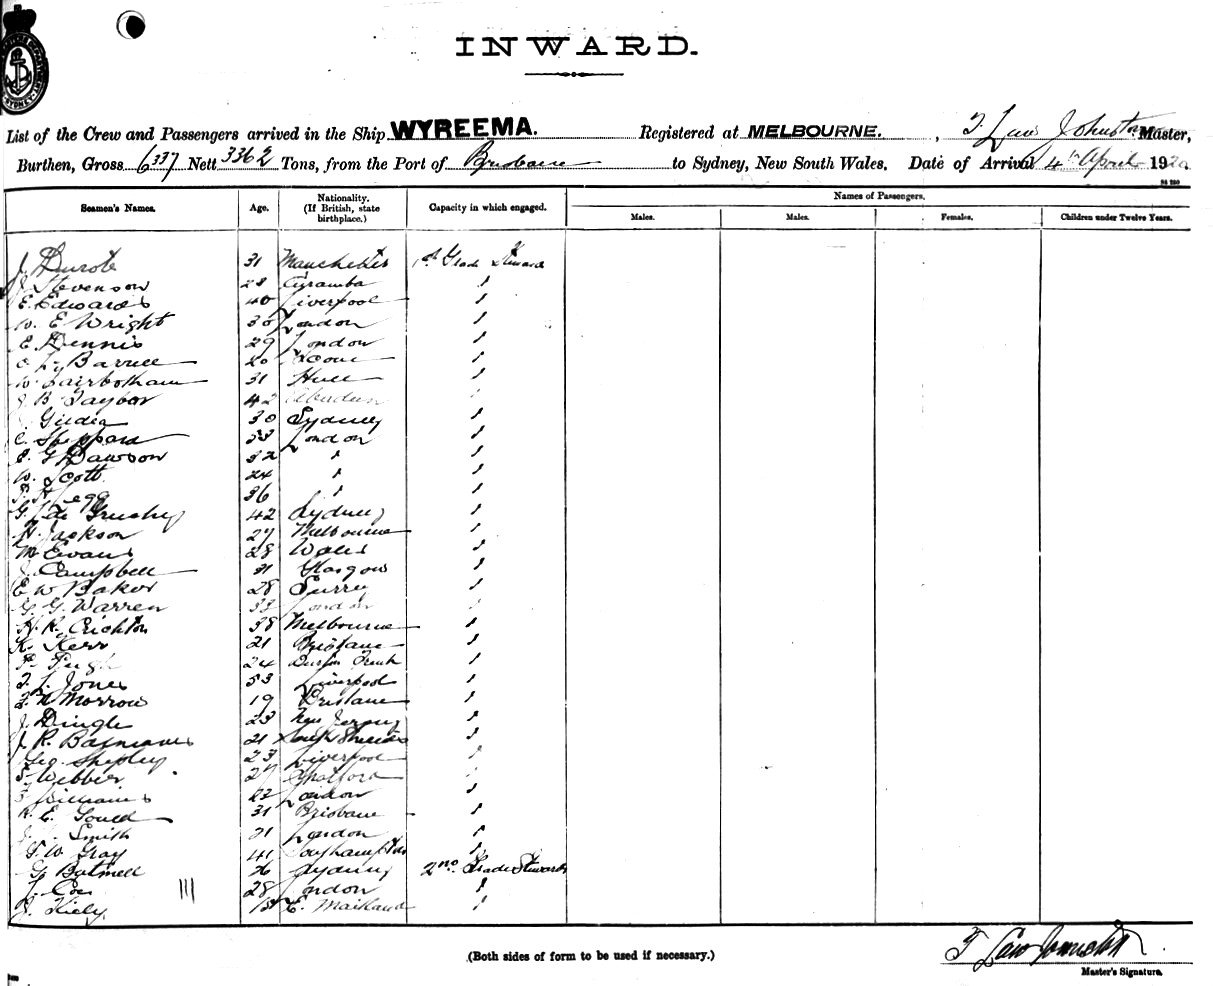 INWARD.
List of the Crew and Passengers arrived in the Ship WYREEMA. Registered at MELBOURNE. , T Law Johnston Master,
Burthen, Gross 6337 Nett 3362 Tons, from the Port of Brisbane to Sydney, New South Wales, Date of Arrival 4th April 1920
Seamen's Names. Age. Nationality. (If British, state birthplace.) Capacity in which engaged. Names of Passengers.
Males. Males. Females. Children under Twelve Years.
J. 31 Manchester 1st Grade Steward
J. Stevenson 28 "
E. Edwards 40 Liverpool "
W. E Wright 30 London "
E Dennis 29 London "
Barrell 20 "
W Fairbotham 31 Hull "
J B Taylor 42 Aberdeen "
Gilder 30 Sydney "
C. Sheppard 33 London "
E. G Dawson 32 " "
W. Scott 24 " "
Legg 36 " "
G. De Gruchy 42 Sydney "
H. Jackson 27 Melbourne "
M Evans 28 Wales "
J. Campbell 31 Glasgow "
E W Baker 28 Surrey "
G. G. Warren 33 London "
H. R. Crichton 38 Melbourne "
K. Kerr 21 Brisbane "
P. Pugh 24 "
T. L. Jones 53 Liverpool "
Morrow 19 Brisbane "
J. Dingle 23 New Jersey "
J. R. 21 South Shields "
Geo Shepley 23 Liverpool "
Webber 27 "
Williams 22 London "
R. E. Gould 31 Brisbane "
Smith 21 London "
T. W. Gray 41 Southampton "
G Batmell 26 Sydney 2nd Grade Steward
J. Coe 28 London "
J. Kiely E. Maitland "
(Both sides of form to be used if necessary.)
T Law Johnston
Master's Signature.